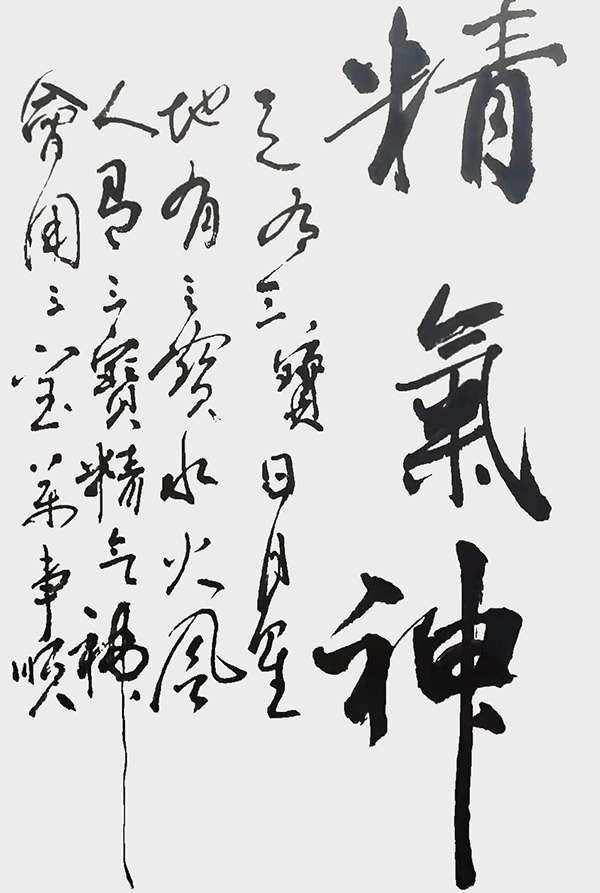 精氣神
天有三寶日月星
地有三寶水火風
人有三寶精气神
會用三宝萬事順